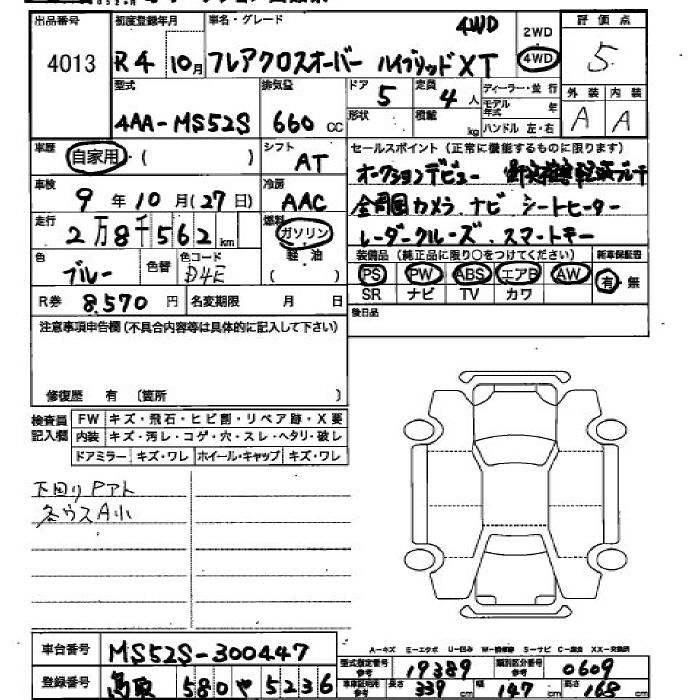 出品番号 初度登録年月 車名・グレード 4WD 2WD 評価点
4013 R4 10月 フレアクロスオーバー ハイブリッド XT 4WD 5
型式 排気量 ドア 定員 ディーラー・並行 外装 内装
4AA-MS52S 660 cc 5 4人 モデル年式 年 A A
形状 積載 kg ハンドル 左・右
車歴 自家用・( ) シフト AT セールスポイント (正常に機能するものに限ります)
車検 9年10月(27日) 冷房 AAC オークションデビュー
走行 2万8千562km 燃料 ガソリン 全周囲カメラ、ナビ シートヒーター
色 ブルー 色替 色コード D4E 軽油 ( ) レーダークルーズ、スマートキー
装備品 (純正品に限り○をつけてください) 新車保証書
PS PW ABS エアB AW 有・無
R券 8,570円 名変期限 月 日 SR ナビ TV カワ
注意事項申告欄 (不具合内容等は具体的に記入して下さい) 後日品
修復歴 有 (箇所 )
検査員記入欄 FW キズ・飛石・ヒビ割・リペア跡・X要
内装 キズ・汚レ・コゲ・穴・スレ・ヘタリ・破レ
ドアミラー キズ・ワレ ホイール・キャップ キズ・ワレ
下回りPアト
各ウスA小
車台番号 MS52S-300447
A-キズ E-エクボ U-凹み W-補修跡 S-サビ C-腐食 XX-交換済
型式指定番号 参考 19389 類別区分番号 参考 0609
登録番号 鳥取 580 や 5236 車庫証明用 参考 長さ 339cm 幅 147cm 高さ 168cm